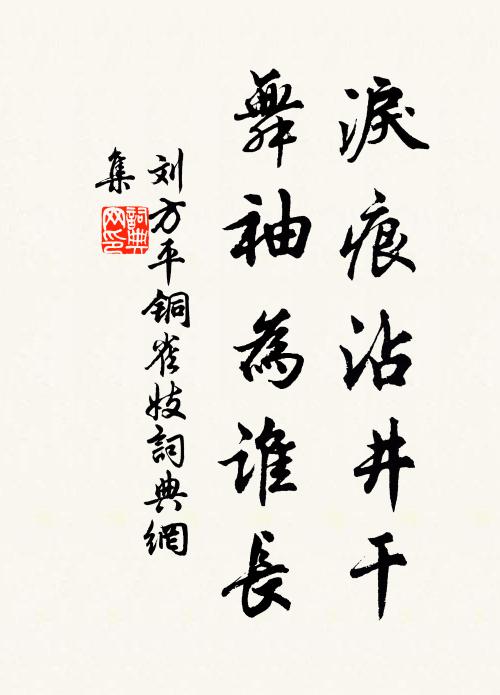 淚痕沾井干
舞袖為誰長
刘方平銅雀妓詞典網
集
詞典网印